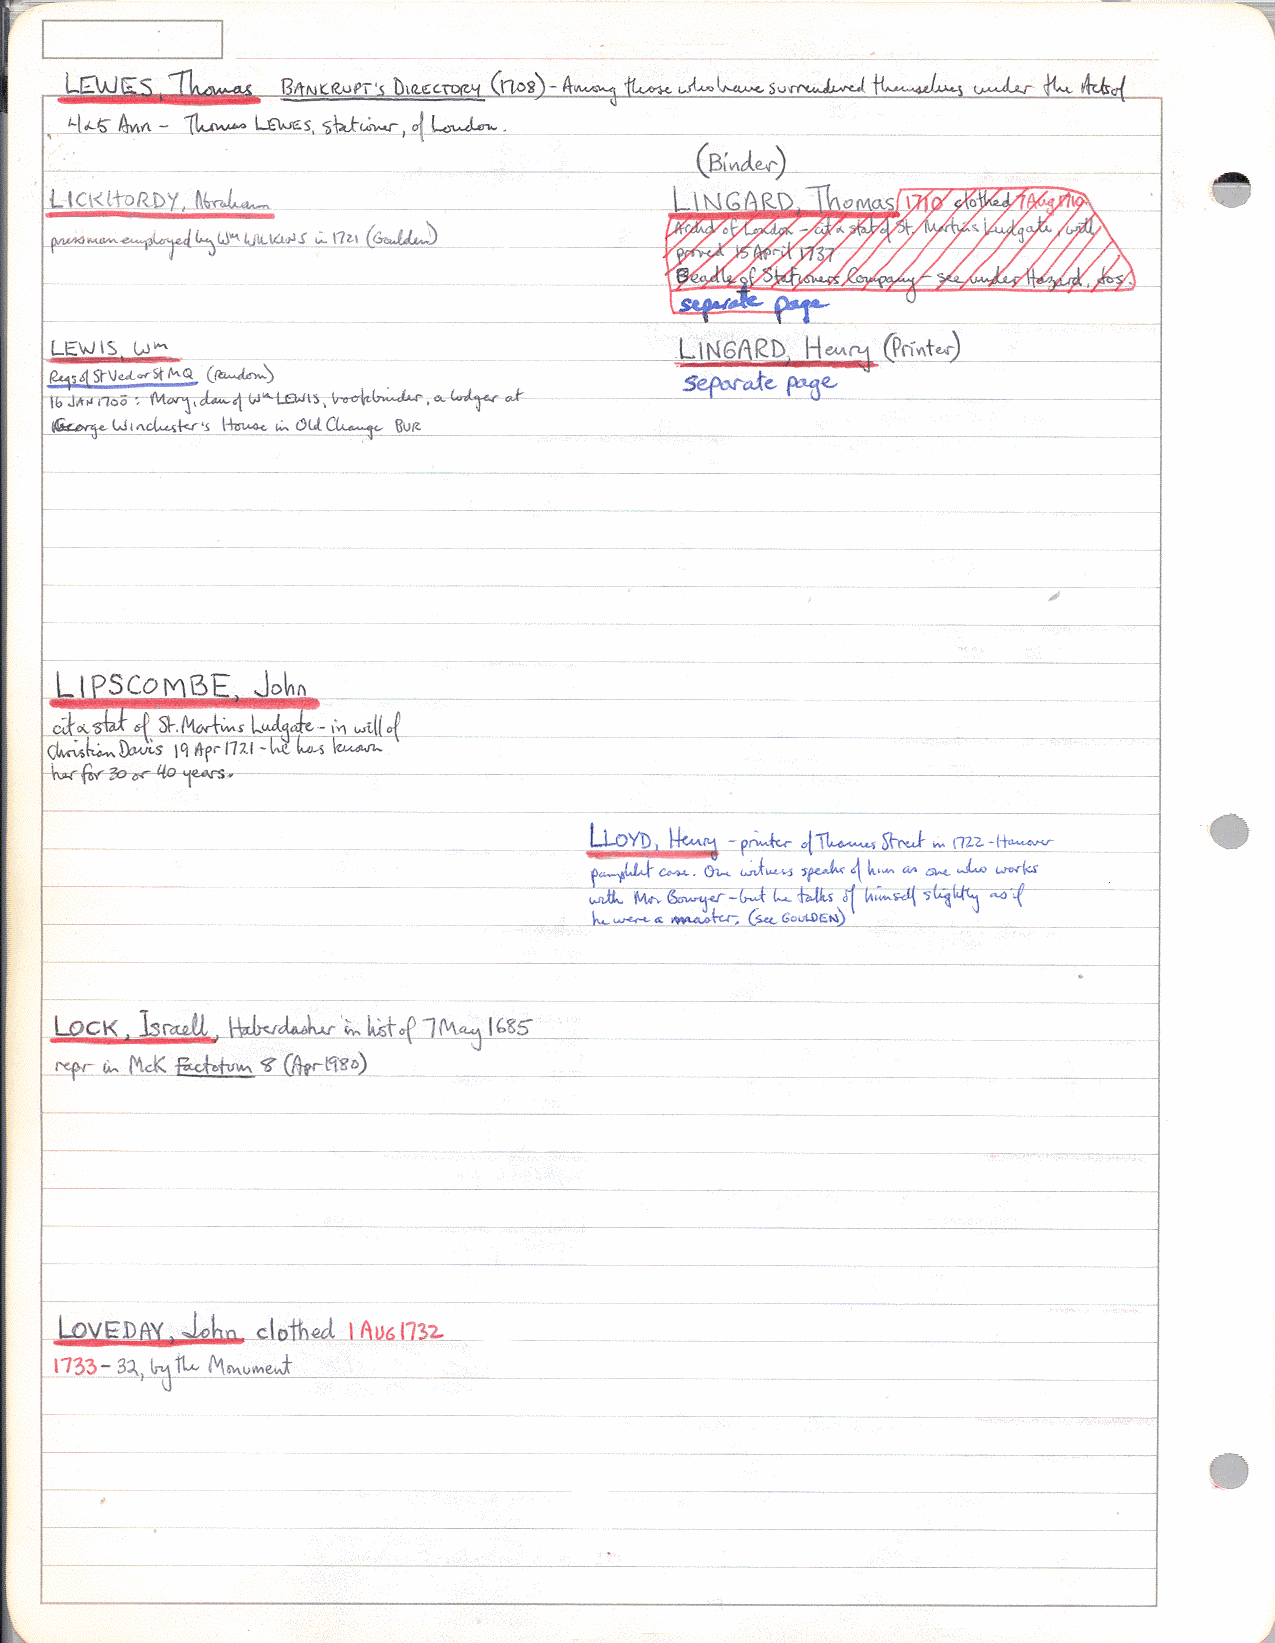 LEWES, Thomas BANKRUPT'S DIRECTORY (1708) - Among those who have surrendered themselves under the Acts of
4 & 5 Ann - Thomas LEWES, stationer, of London.
LICKHORDY, Abraham
pressman employed by Wm WILKINS in 1721 (Goulden)
(Binder)
LINGARD, Thomas 1710 clothed 7 Aug 1710
Archd of London - cit & stat of St. Martins Ludgate, will
proved 15 April 1737
Beadle of Stationers Company - see under Hazard, Jos.
separate page
LEWIS, Wm
Regs of St Ved or St MQ (random)
16 JAN 1700: Mary, dau of Wm LEWIS, bookbinder, a lodger at
George Winchester's House in Old Change BUR
LINGARD, Henry (Printer)
separate page
LIPSCOMBE, John
cit & stat of St. Martins Ludgate - in will of
Christian Davis 19 Apr 1721 - he has known
her for 30 or 40 years.
LLOYD, Henry - printer of Thames Street in 1722 - Hanover
pamphlet case. One witness speaks of him as one who works
with Mr Bowyer - but he talks of himself slightly as if
he were a master. (see GOULDEN)
LOCK, Israell, Haberdasher in list of 7 May 1685
repr in McK Factotum 8 (Apr 1980)
LOVEDAY, John clothed 1 AUG 1732
1733 - 32, by the Monument